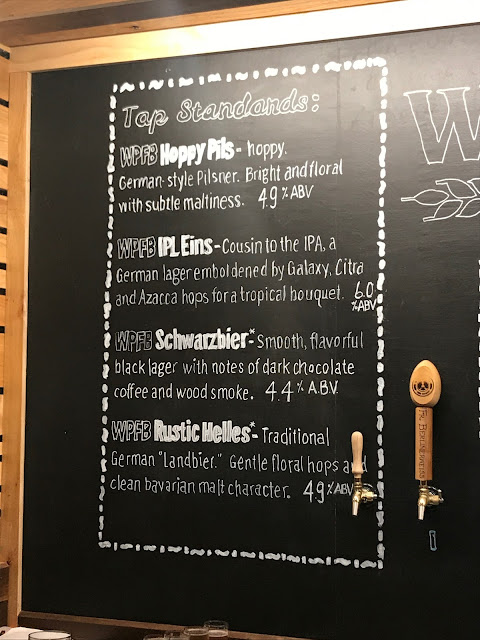 Tap Standards:
WPFB Hoppy Pils - hoppy.
German-style Pilsner. Bright and floral
with subtle maltiness. 4.9 % ABV
WPFB IPL Eins - Cousin to the IPA, a
German lager emboldened by Galaxy, Citra
and Azacca hops for a tropical bouquet. 6.0
% ABV
WPFB Schwarzbier* - Smooth, flavorful
black lager with notes of dark chocolate
coffee and wood smoke. 4.4 % A.B.V.
WPFB Rustic Helles* - Traditional
German "Landbier." Gentle floral hops and
clean bavarian malt character. 4.9 % ABV
W